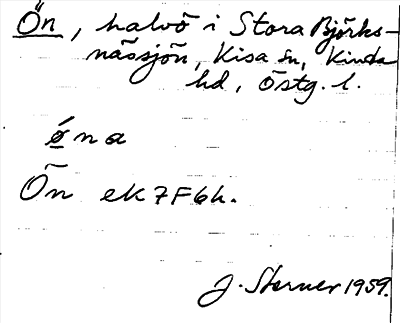 Ön, halvö i Stora Björks-
näsesjön, Kisa sn, Kinda
hd, Östg. l.
ǿna
Ön ek 7F6h.
J. Sterner 1959.